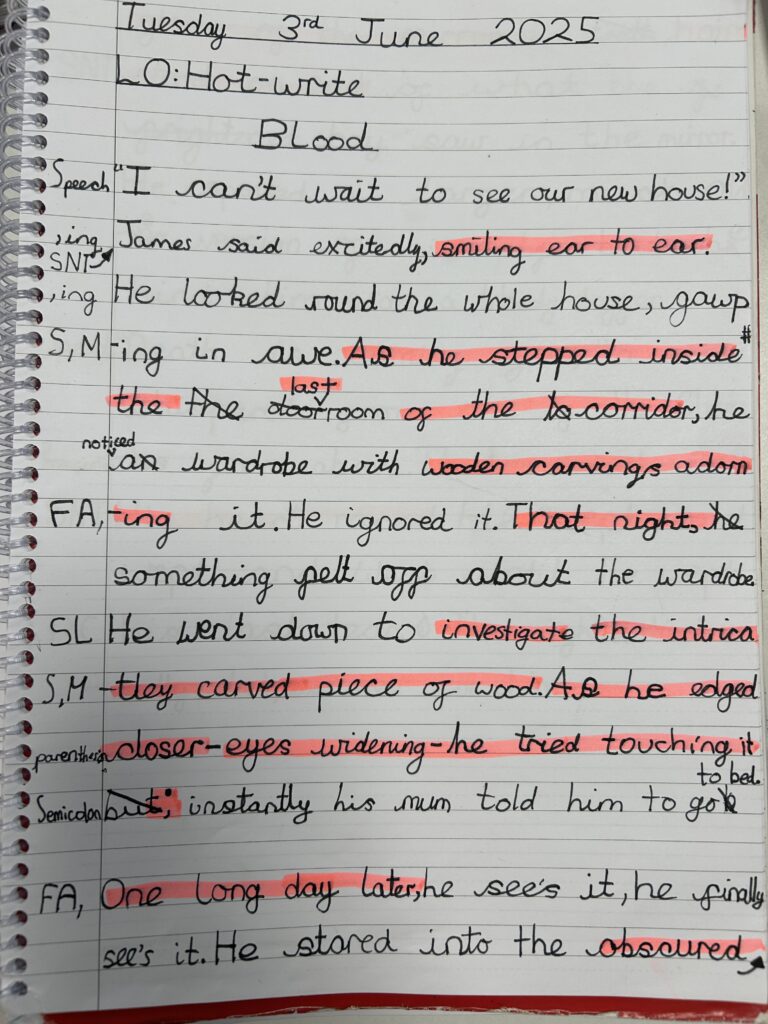 Tuesday 3rd June 2025
LO: Hot-write
Blood
Speech "I can't wait to see our new house!"
,ing James said excitedly, smiling ear to ear.
SNT
,ing He looked round the whole house, gawp
S,M -ing in awe. As he stepped inside #
last
the the door room of the to corridor, he
noticed
an wardrobe with wooden carvings adorn
FA, -ing it. He ignored it. That night, he
something felt off about the wardrobe
SL He went down to investigate the intrica
S,M -tley carved piece of wood. As he edged
parenthesis closer-eyes widening-he tried touching it
to bed.
Semicolon but; instantly his mum told him to go
FA, One long day later, he see's it, he finally
see's it. He stared into the obscured